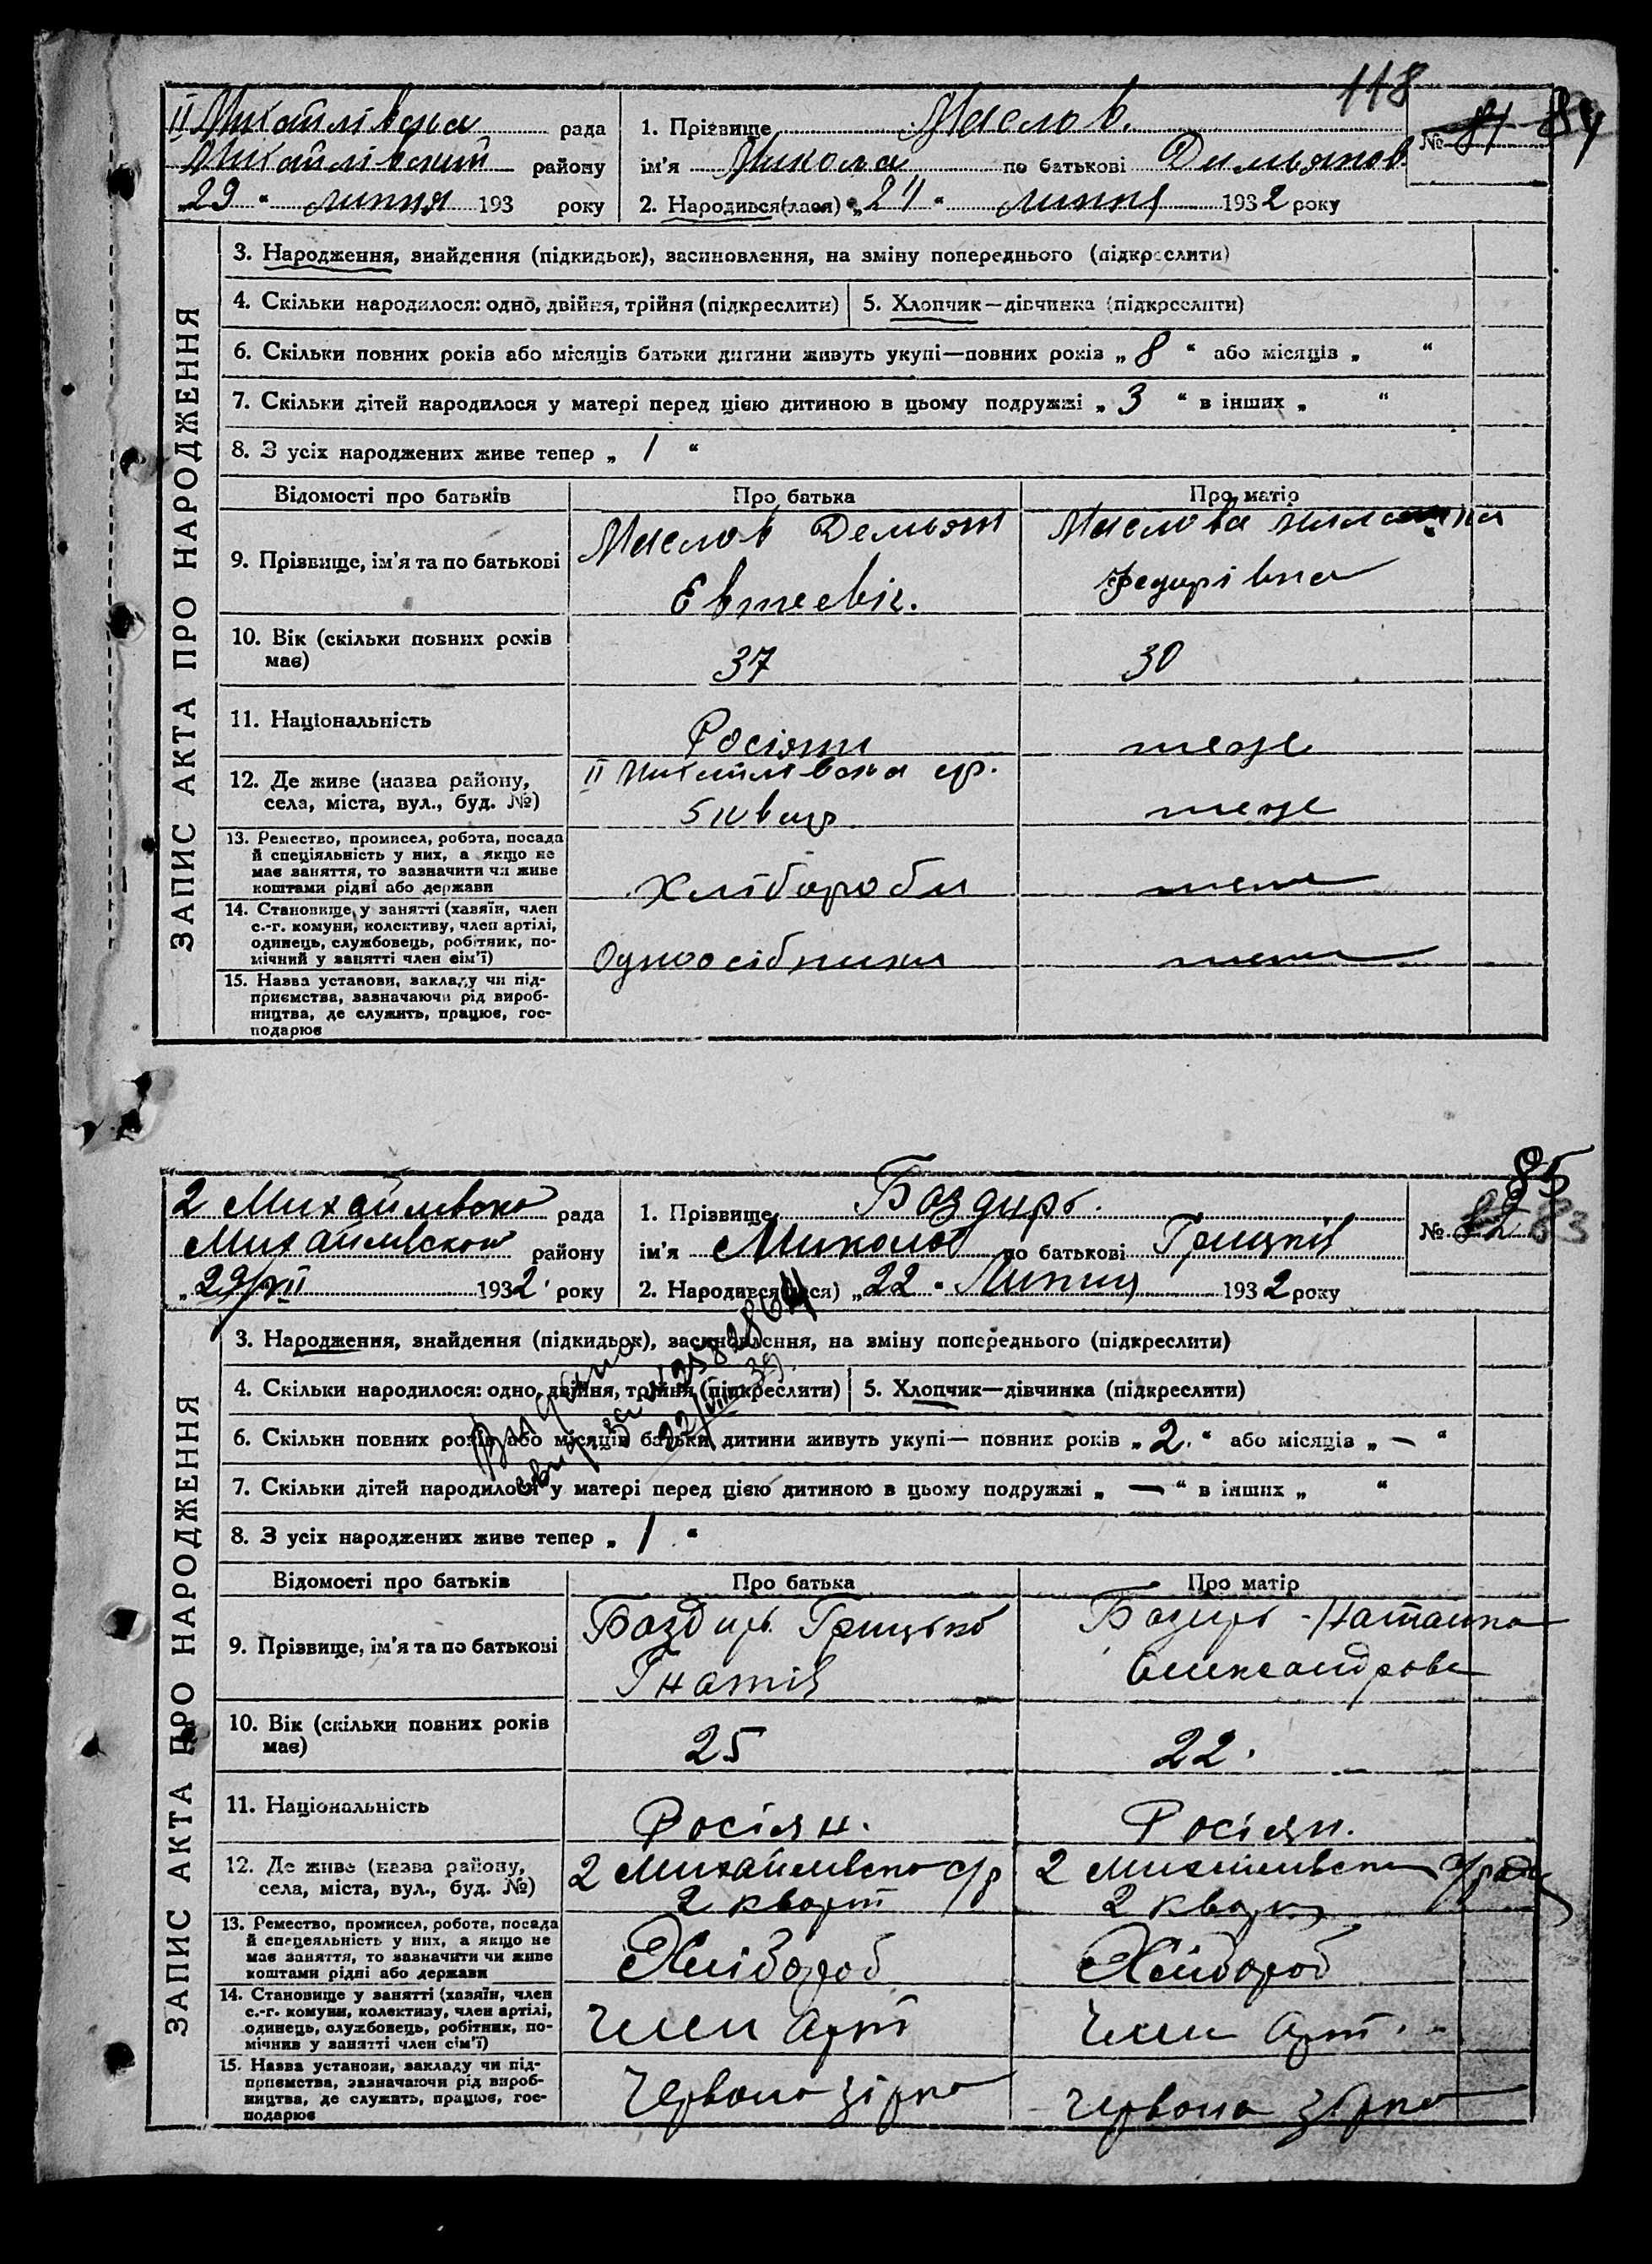 118
II Михайлівська рада
Михайлівський району
„29“ липня 193 року
1. Прізвище Маслов.
ім'я Микола по батькові Дильянов
2. Народився(лася) „21“ липня 1932 року
№ 81 84
ЗАПИС АКТА ПРО НАРОДЖЕННЯ
3. Народження, знайдення (підкидьок), засиновлення, на зміну попереднього (підкреслити)
4. Скільки народилося: одно, двійня, трійня (підкреслити)
5. Хлопчик—дівчинка (підкреслити)
6. Скільки повних років або місяців батьки дитини живуть укупі—повних років „8“ або місяців „ “
7. Скільки дітей народилося у матері перед цією дитиною в цьому подружжі „3“ в інших „ “
8. З усіх народжених живе тепер „1“
Відомості про батьків Про батька Про матір
9. Прізвище, ім'я та по батькові
Маслов Демьян
Евтеевіч.
Маслова
Федорівна
10. Вік (скільки повних років
має)
37 30
11. Національність
Росіяни теже
12. Де живе (назва району,
села, міста, вул., буд. №)
II Михайлівська ср.
5 квар
теже
13. Ремество, промисел, робота, посада
й спеціяльність у них, а якщо не
має заняття, то зазначити чи живе
коштами рідні або держави
Хлібороби
14. Становище у занятті (хазяїн, член
с.-г. комуни, колективу, член артілі,
одинець, службовець, робітник, по-
мічний у занятті член сім'ї)
Одноосібники
15. Назва установи, закладу чи під-
приємства, зазначаючи рід вироб-
ництва, де служить, працює, гос-
подарює
2 Михайлівська рада
Михайлівской району
„29/VII 1932 року
1. Прізвище Баздирь.
ім'я Микола по батькові Грицків
2. Народився(лася) „22“ Липня 1932 року
85
№ 82 83
ЗАПИС АКТА ПРО НАРОДЖЕННЯ
3. Народження, знайдення (підкидьок), засиновлення, на зміну попереднього (підкреслити)
4. Скільки народилося: одно, двійня, трійня (підкреслити)
5. Хлопчик—дівчинка (підкреслити)
6. Скільки повних років або місяців батьки дитини живуть укупі— повних років „2.“ або місяців „—“
7. Скільки дітей народилося у матері перед цією дитиною в цьому подружжі „—“ в інших „ “
8. З усіх народжених живе тепер „1“
Видано
Відомості про батьків Про батька Про матір
9. Прізвище, ім'я та по батькові
Баздирь Грицько
Гнатів
Базирь - Наталка
Олександрова
10. Вік (скільки повних років
має)
25 22.
11. Національність
Росіян. Росіян.
12. Де живе (назва району,
села, міста, вул., буд. №)
2 Михайлівська с/р
2 кварт
2 Михайлівська с/рада
2 кварт
13. Ремество, промисел, робота, посада
й спецеяльність у них, а якщо не
має заняття, то зазначити чи живе
коштами рідні або держави
Хлібороб Хлібороб
14. Становище у занятті (хазяїн, член
с.-г. комуни, колективу, член артілі,
одинець, службовець, робітник, по-
мічник у занятті член сім'ї)
Член Арт Член Арт.
15. Назва установи, закладу чи під-
приємства, зазначаючи рід вироб-
ництва, де служить, працює, гос-
подарює
Червона зірка Червона зірка